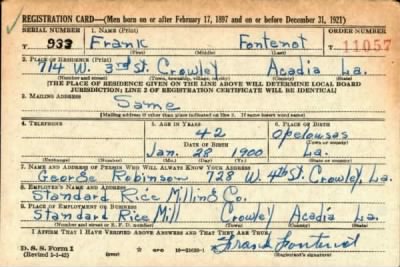 REGISTRATION CARD—(Men born on or after February 17, 1897 and on or before December 31, 1921)
SERIAL NUMBER 1. NAME (Print) ORDER NUMBER
933 Frank Fontenot 11057
(First) (Middle) (Last)
2. PLACE OF RESIDENCE (Print)
714 W. 3rd St. Crowley Acadia La.
(Number and street) (Town, township, village, or city) (County) (State)
[THE PLACE OF RESIDENCE GIVEN ON THE LINE ABOVE WILL DETERMINE LOCAL BOARD
JURISDICTION; LINE 2 OF REGISTRATION CERTIFICATE WILL BE IDENTICAL]
3. MAILING ADDRESS
Same
[Mailing address if other than place indicated on line 2. If same insert word same]
4. TELEPHONE 5. AGE IN YEARS 6. PLACE OF BIRTH
42 Opelousas
DATE OF BIRTH (Town or county)
Jan. 28 1900 La.
(Mo.) (Day) (Yr.) (State or country)
7. NAME AND ADDRESS OF PERSON WHO WILL ALWAYS KNOW YOUR ADDRESS
George Robinson 728 W. 4th St. Crowley, La.
8. EMPLOYER'S NAME AND ADDRESS
Standard Rice Milling Co.
9. PLACE OF EMPLOYMENT OR BUSINESS
Standard Rice Mill Crowley Acadia La.
(Number and street or R. F. D. number) (Town) (County) (State)
I AFFIRM THAT I HAVE VERIFIED ABOVE ANSWERS AND THAT THEY ARE TRUE.
D. S. S. Form 1
(Revised 1-1-42) (over) Frank Fontenot